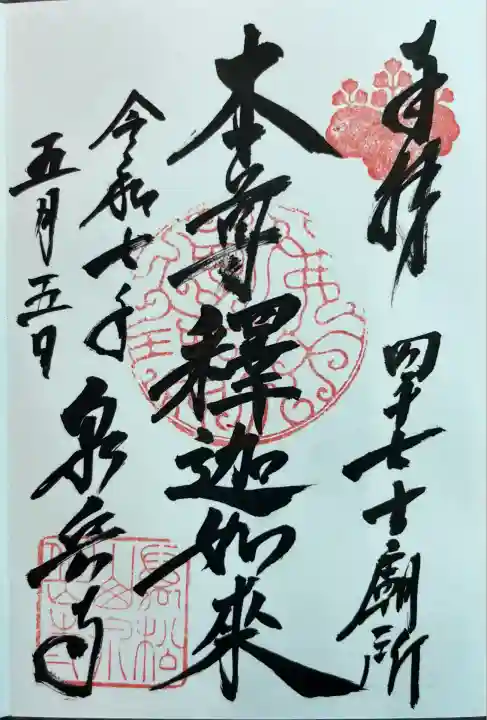 奉拝
四十七士廟所
本尊釋迦如來
令和七年
五月五日
泉岳寺